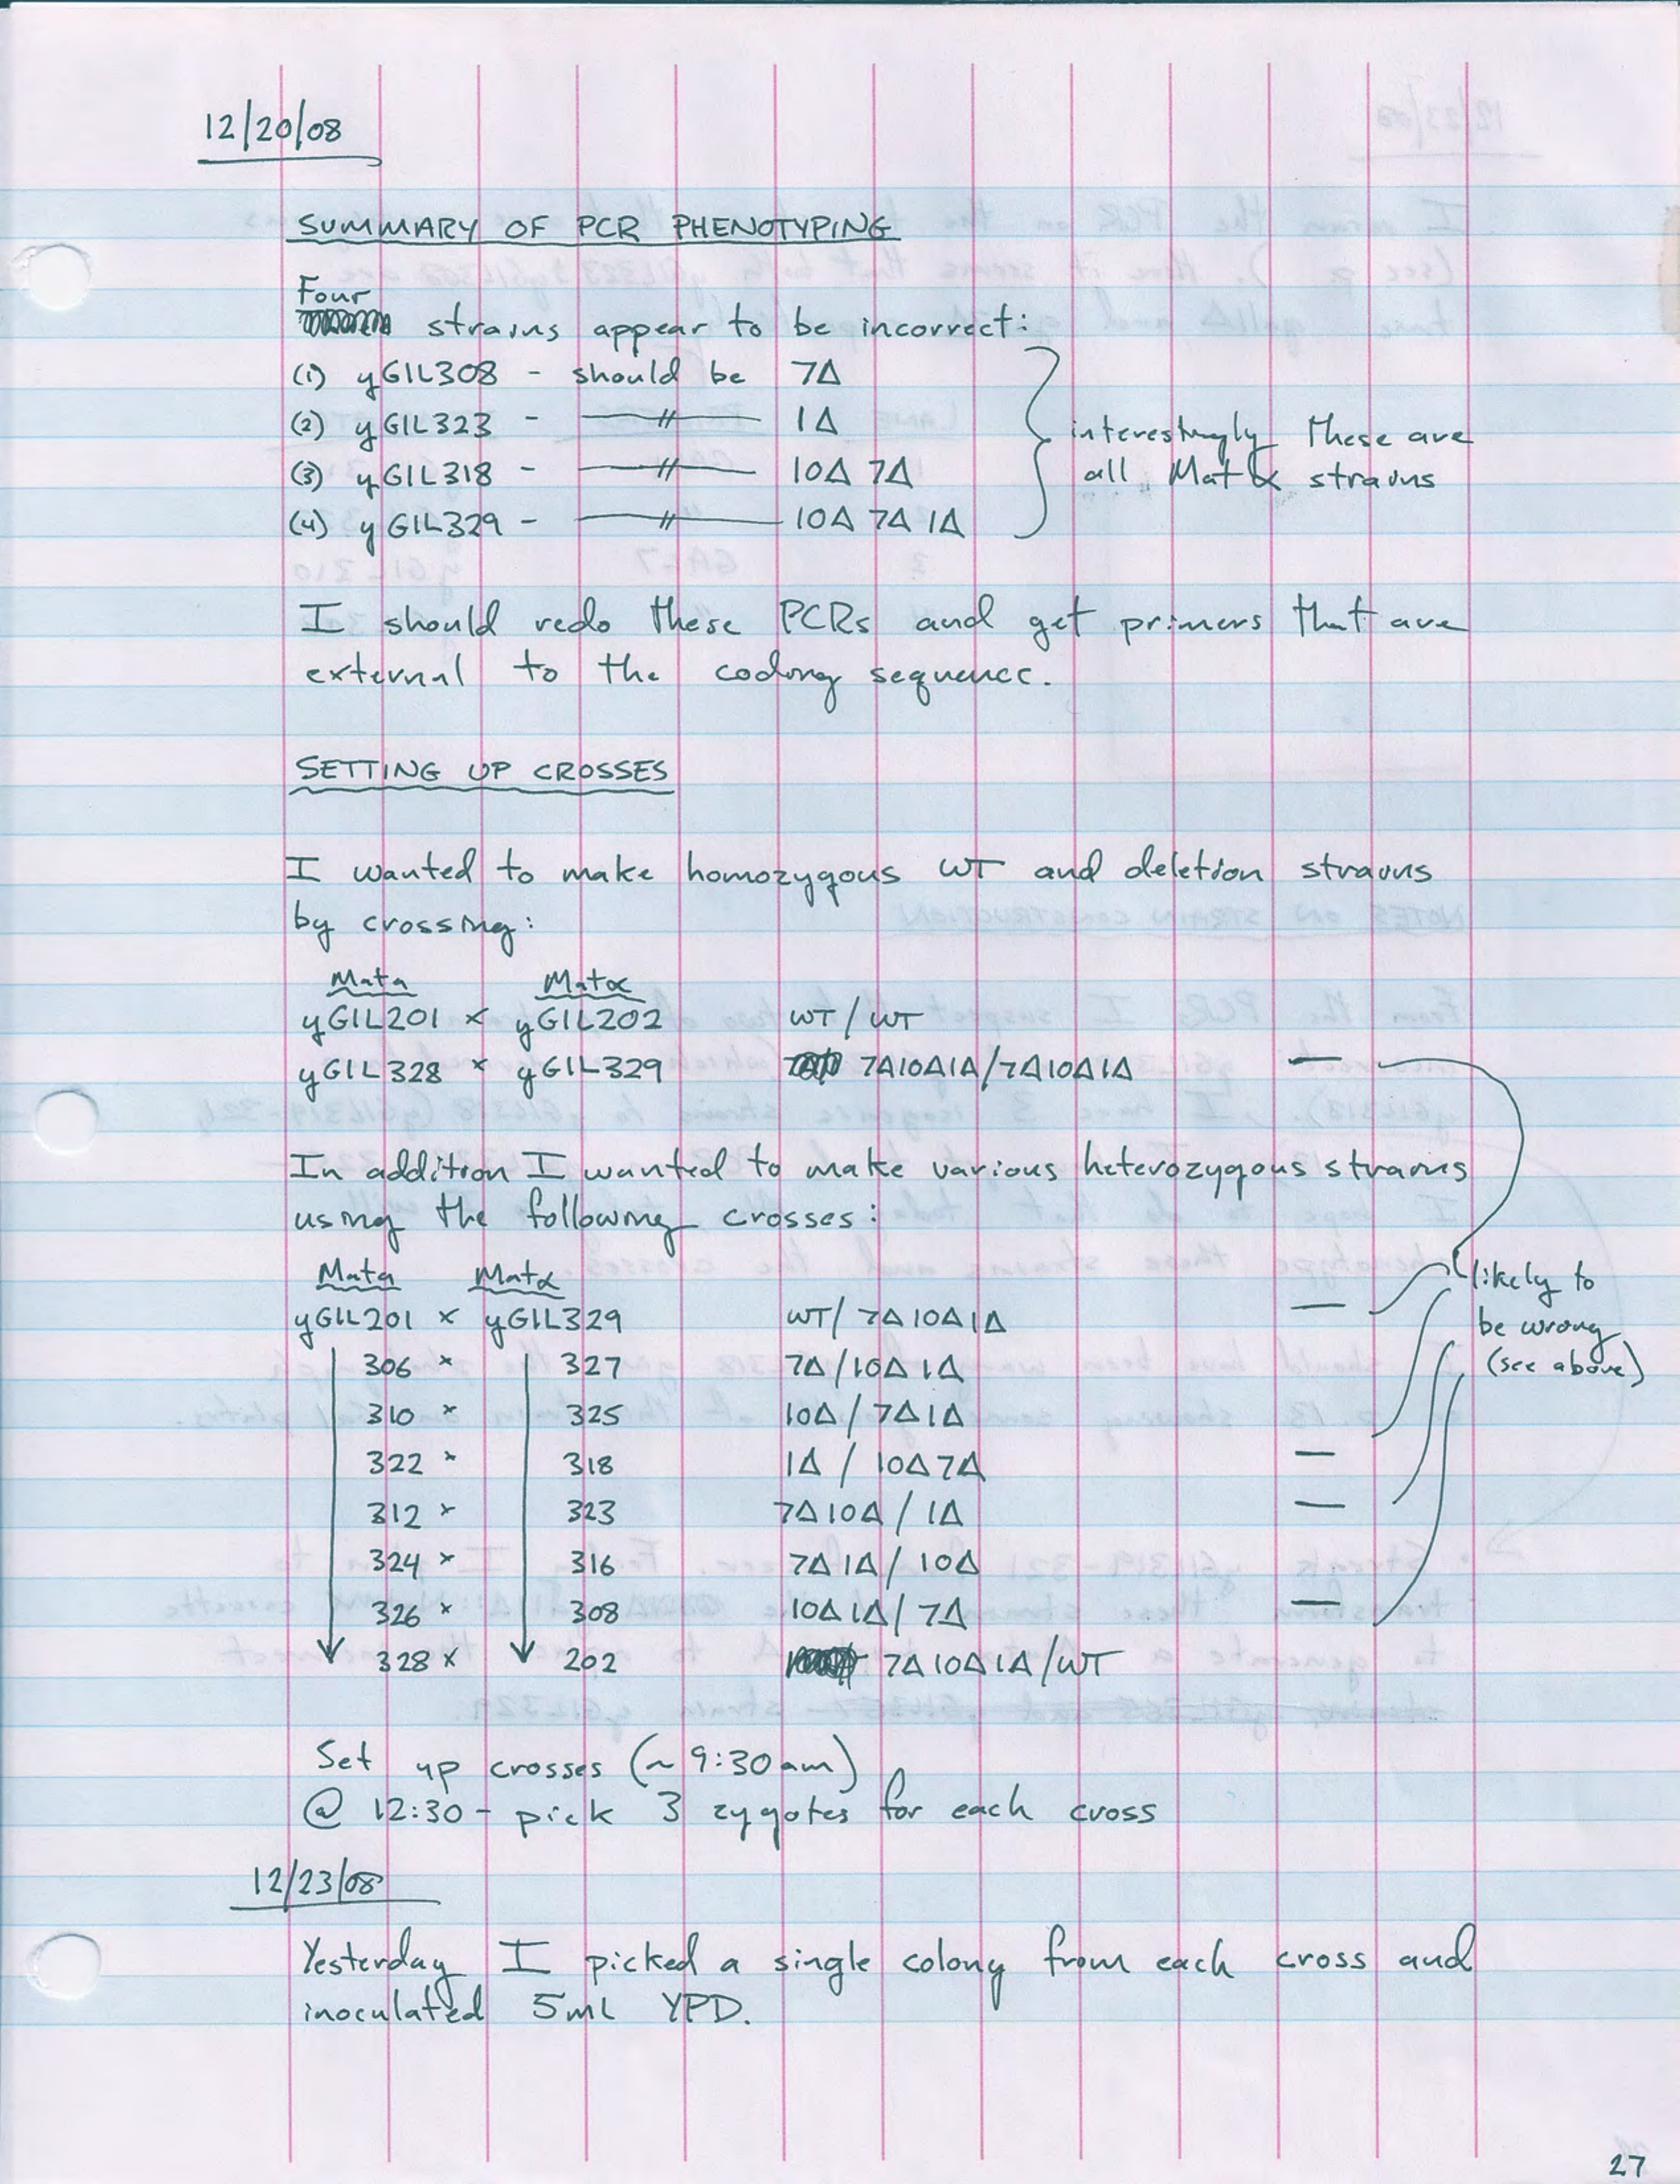 12/20/08
SUMMARY OF PCR PHENOTYPING
Four
strains appear to be incorrect:
(1) yGIL308 - should be 7Δ
(2) yGIL323 - —〃— 1Δ
(3) yGIL318 - —〃— 10Δ 7Δ
(4) yGIL329 - —〃— 10Δ 7Δ 1Δ
interestingly these are
all Mat α strains
I should redo these PCRs and get primers that are
external to the coding sequence.
SETTING UP CROSSES
I wanted to make homozygous WT and deletion strains
by crossing:
Mata Matα
yGIL201 × yGIL202 WT / WT
yGIL328 × yGIL329 7Δ10Δ1Δ/7Δ10Δ1Δ —
In addition I wanted to make various heterozygous strains
using the following crosses:
Mata Matα
yGIL201 × yGIL329 WT/ 7Δ10Δ1Δ —
306 × 327 7Δ/10Δ 1Δ
310 × 325 10Δ / 7Δ1Δ
322 × 318 1Δ / 10Δ7Δ —
312 × 323 7Δ10Δ / 1Δ —
324 × 316 7Δ1Δ / 10Δ
326 × 308 10Δ1Δ/ 7Δ —
328 × 202 7Δ10Δ1Δ/WT
likely to
be wrong
(see above)
Set up crosses (~ 9:30am)
@ 12:30 - pick 3 zygotes for each cross
12/23/08
Yesterday I picked a single colony from each cross and
inoculated 5mL YPD.
27